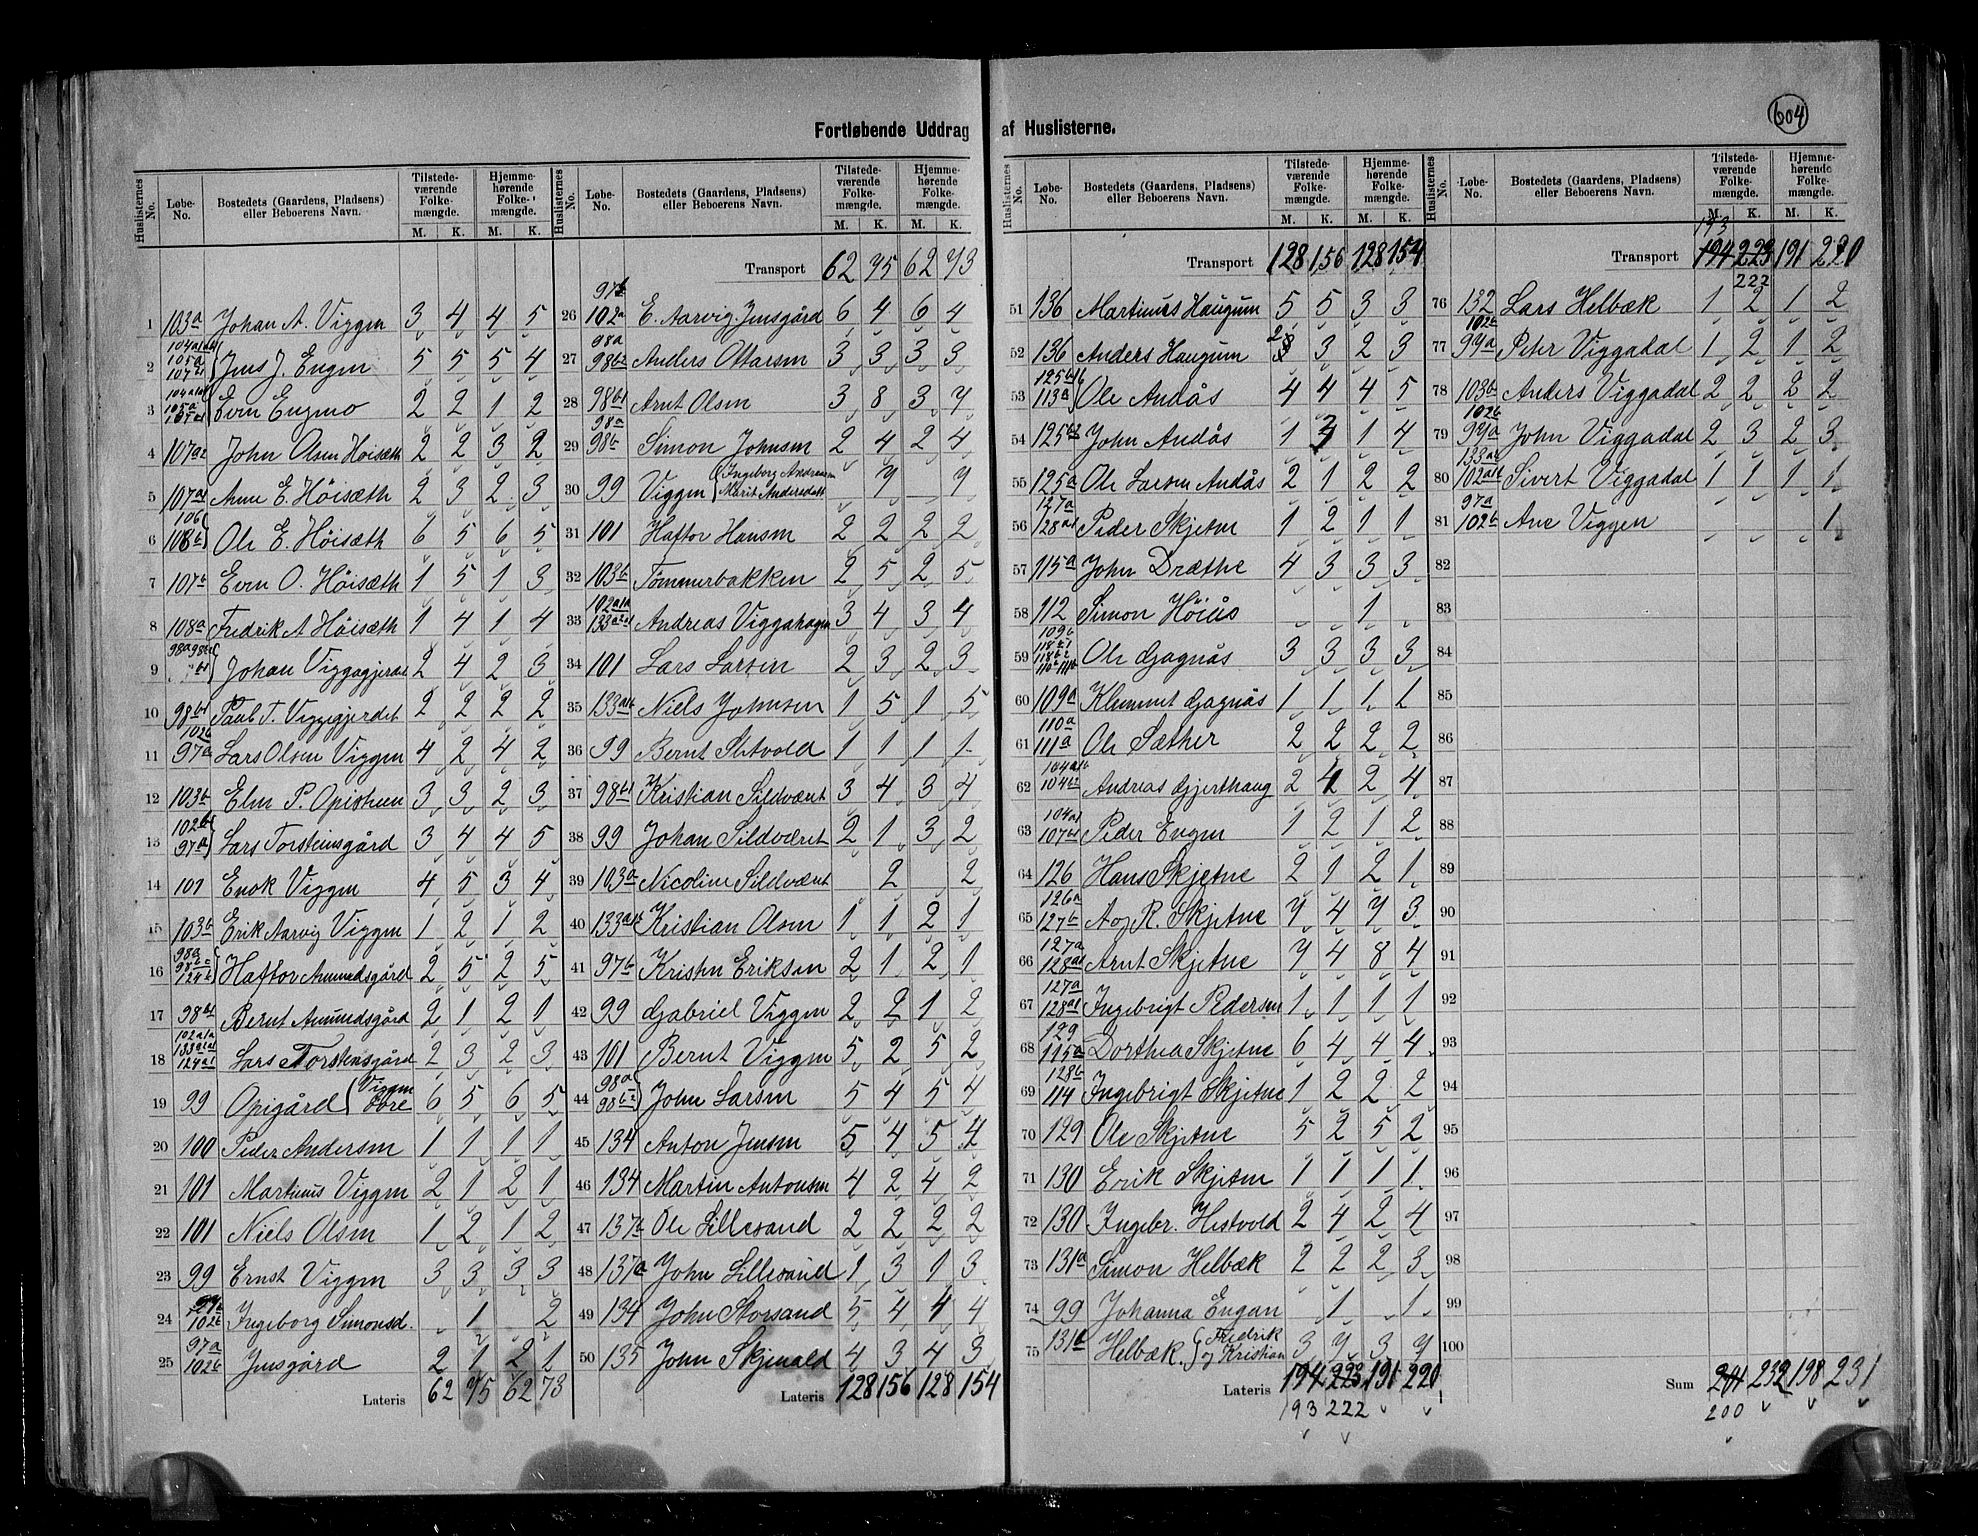 604
Fortløbende Uddrag af Huslisterne.
Huslisternes No. Løbe-No. Bostedets (Gaardens, Pladsens) eller Beboerens Navn. Tilstedeværende Folkemængde. M. K. Hjemmehørende Folkemængde. M. K.
1 103a Johan A. Viggen 3 4 4 5
2 105a Jens J. Engen 5 5 5 4
3 105a Even Engmo 2 2 1 2
4 107a2 John Olsen Höisæth 2 2 3 2
5 107a1 Anne E. Höisæth 2 3 2 3
6 106 108b Ole E. Höisæth 6 5 6 5
7 107b Even O. Höisæth 1 5 1 3
8 108a Fredrik A Höisæth 1 4 1 4
9 Johan Viggagjerdet 2 4 2 3
10 98b1 Paul T. Viggegjerdet 2 2 2 2
11 102b 97a Lars Olsen Viggen 4 2 4 2
12 103b Elen P. Opistuen 3 3 2 3
13 102b 97a Lars Torsteinsgård 3 4 4 5
14 101 Enok Viggen 4 5 3 4
15 103b Erik Aarvig Viggen 1 2 1 2
16 98a 124b Haftor Amundsgård 2 5 2 5
17 98b1 Bernt Amundsgård 2 1 2 1
18 102a1a 133a1a1 124a1 Lars Torstensgård 2 3 2 3
19 99 Opigård (Viggen Øvre 6 5 6 5
20 100 Peder Andersen 1 1 1 1
21 101 Martinus Viggen 2 1 2 1
22 101 Niels Olsen 1 2 1 2
23 99 Ernst Viggen 3 3 3 3
24 102b Ingeborg Simonsd. 1 2
25 97a 102b Jensgård 2 1 2 1
Lateris 62 75 62 73
Huslisternes No. Løbe-No. Bostedets (Gaardens, Pladsens) eller Beboerens Navn. Tilstedeværende Folkemængde. M. K. Hjemmehørende Folkemængde. M. K.
Transport 62 75 62 73
26 97b 102a E. Aarvig. Jensgård 6 4 6 4
27 98a 98b2 Anders Ottarsen 3 3 3 3
28 98b1 Arnt Olsen 3 8 3 7
29 98a 98b Simon Johnsen 2 4 2 4
30 99 Viggen (Ingeborg Andreasen Marit Andersdatt 7 7
31 101 Haftor Hansen 2 2 2 2
32 103b Tömmerbakken 2 5 2 5
33 102a1a 133a2a1 Andreas Viggahagen 3 4 3 4
34 101 Lars Larsen 2 3 2 3
35 133a1b Niels Johnsen 1 5 1 5
36 99 Bernt Sletvold 1 1 1 1
37 98b1 Kristian Sildværet 3 4 3 4
38 99 Johan Sildværet 2 1 3 2
39 103a Nicoline Sildværet 2 2
40 133a1b Kristian Olsen 1 1 2 1
41 97b Kristen Eriksen 2 1 2 1
42 99 Gabriel Viggen 2 2 1 2
43 101 Bernt Viggen 5 2 5 2
44 98a 98b2 John Larsen 5 4 5 4
45 134 Anton Jensen 5 4 5 4
46 134 Martin Antonsen 4 2 4 2
47 137b Ole Lillesand 2 2 2 2
48 137a John Lillesand 1 3 1 3
49 134 John Storsand 5 4 4 4
50 135 John Skjenald 4 3 4 3
Lateris 128 156 128 154
Huslisternes No. Løbe-No. Bostedets (Gaardens, Pladsens) eller Beboerens Navn. Tilstedeværende Folkemængde. M. K. Hjemmehørende Folkemængde. M. K.
Transport 128 156 128 154
51 136 Martinus Haugum 5 5 3 3
52 136 Anders Haugum 2 3 2 3
53 125b1 113a Ole Andås 4 4 4 5
54 125b2 John Andås 1 1 4
55 125a Ole Larsen Andås 2 1 2 2
56 127a 128a1 Peder Skjetne 1 2 1 1
57 115a John Dræthe 4 3 3 3
58 112 Simon Höiås 1
59 109b 118b1 118b2 Ole Gagnås 3 3 3 3
60 109a Klemmet Gagnås 1 1 1 1
61 110a 111a Ole Sæther 2 2 2 2
62 104a1b 104b2 Andreas Gjerthaug 2 4 2 4
63 104a1 107b1 Peder Engen 1 2 1 2
64 126 Hans Skjetne 2 1 2 1
65 126a 127b A og R. Skjetne 7 4 7 3
66 127a 128a1 Arnt Skjetne 7 4 8 4
67 127a 128a1 Ingebrigt Pedersen 1 1 1 1
68 129 115a Dorthea Skjetne 6 4 4 4
69 128b 114 Ingebrigt Skjetne 1 2 2 2
70 129 Ole Skjetne 5 2 5 2
71 130 Erik Skjetne 1 1 1 1
72 130 Ingebr. Hestvold 2 4 2 4
73 131a Simon Helbæk 2 2 2 3
74 99 Johanna Engan 1 1
75 131b Helbæk. (Fredrik og Kristian 3 9 3 9
Lateris 194 223 191 220
193 222
Huslisternes No. Løbe-No. Bostedets (Gaardens, Pladsens) eller Beboerens Navn. Tilstedeværende Folkemængde. M. K. Hjemmehørende Folkemængde. M. K.
193
Transport 194 223 191 220
222
76 132 Lars Helbæk 1 2 1 2
77 102b 99a Peter Viggadal 1 2 1 2
78 103b Anders Viggadal 2 2 2 2
79 102b 99a John Viggadal 2 3 2 3
80 133a1 102a1b Sivert Viggadal 1 1 1 1
81 97a 102b Ane Viggen 1
82
83
84
85
86
87
88
89
90
91
92
93
94
95
96
97
98
99
100
Sum 201 232 198 231
200